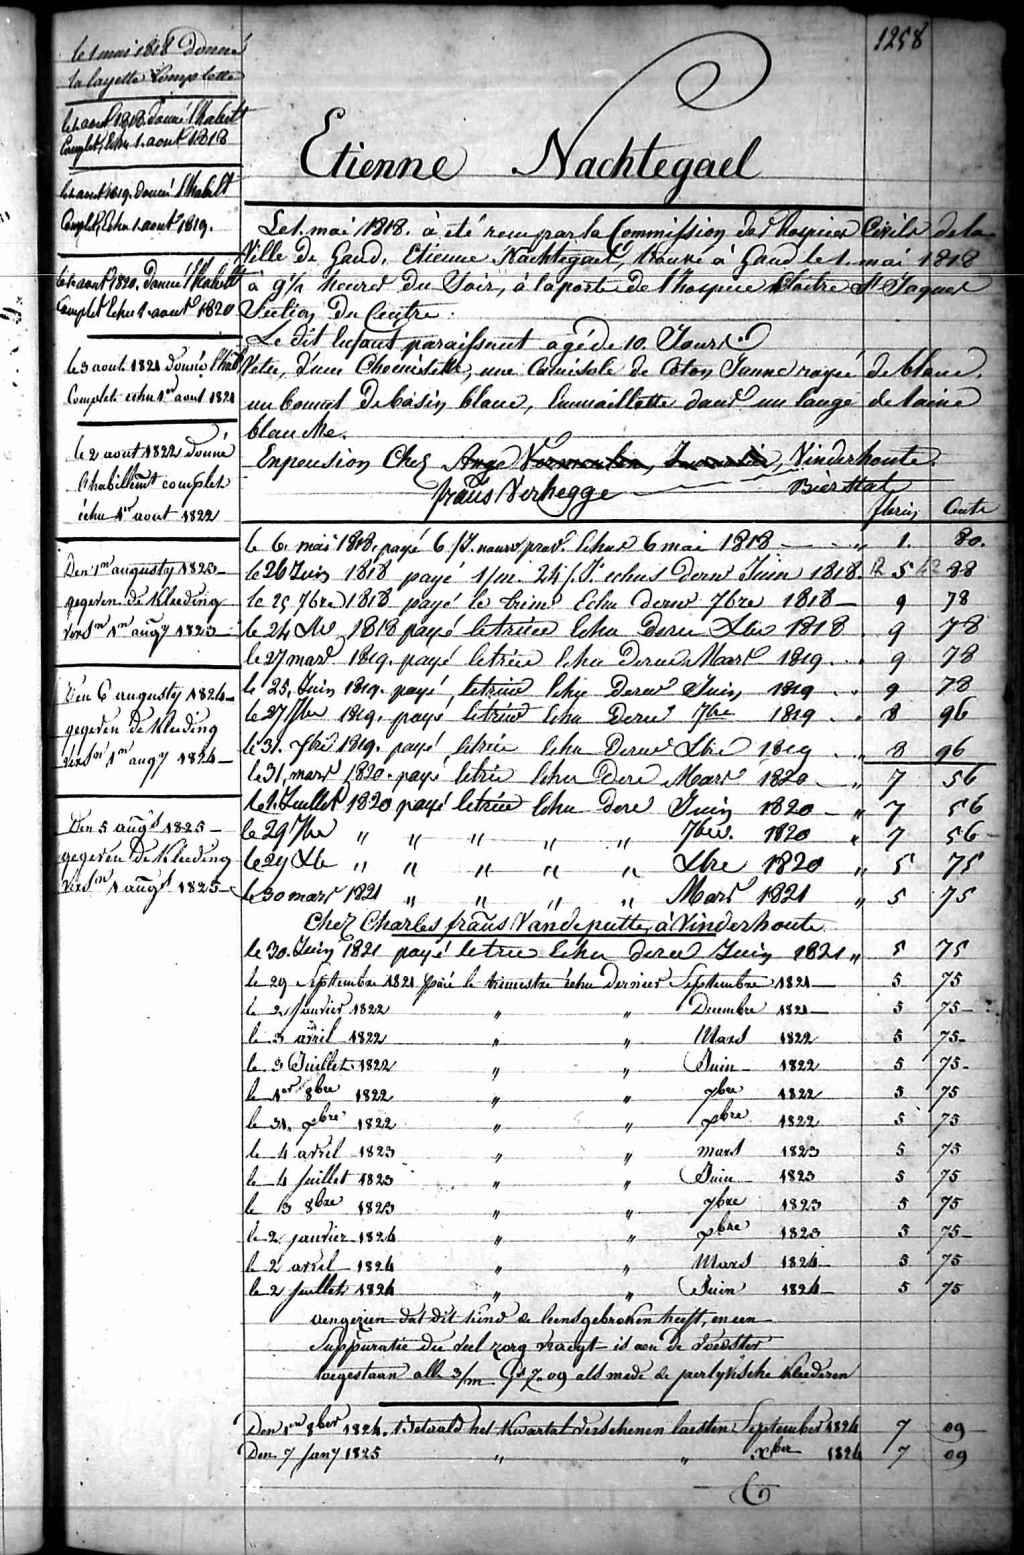 1258
le 1 mai 1818 Donné
la layette Complette
le 1 aout 1818 donné l'habilt
Complet, Echu 1. aout 1818
le 1 aout 1819. donné l'habilt
Complet, Echu 1. aout 1819.
le 1 aout 1820. donné l'habilt
Complet Echu 1. aout 1820
le 3 aout 1821 donné l'hab
Complet echu 1er aout 1821
le 2 aout 1822 donné
l'habillemt complet
echu 1er aout 1822
Den 1m augusty 1823
gegeven de Kleeding
versm 1m augy 1823
Den 6 augusty 1824
gegeven de Kleeding
versm 1m augy 1824
Den 5 augs 1825
gegeven de Kleeding
versm 1 augs 1825
Etienne Nachtegael
Le 1. mai 1818. à été reçu par la Commission des hospices Civils de la
Ville de Gand, Etienne Nachtegael, trouvé à Gand le 1. mai 1818
à 9½ heures du Soir, à la porte de l'hospice Cloitre St Jaques
Section du Centre.
Le dit Enfant paraissant agé de 10. Jours.
Vetu, d'une Chemisette, une Camisole de Coton Jaune rayée de blanc,
un bonnet de basin blanc, Emmaillotté dans un lange de laine
blanche.
En pension Chez Ange Vermeulen, Vinderhoute.
frans Verhegge Bierstal
florins Cents
le 6. mai 1818. payé 6 / J. nourr prov. Echus 6 mai 1818 - - " 1. 80.
le 26 Juin 1818 payé 1/m. 24 / J. echus dernr Juin 1818. 12 5 42 88
le 25 7bre 1818 payé le trime Echu dernr 7bre 1818 9 78
le 24 Xbre 1818 payé le trime Echu dernr Xbre 1818 9 78
le 27 mars 1819. payé le trime Echu dernr Mars 1819 . . . 9 78
le 25, Juin 1819. payé le trime Echu dernr Juin 1819 . . 9 78
le 27 7bre 1819. payé le trime Echu dernr 7bre 1819 " 8 96
le 31. Xbre 1819. payé le trime Echu dernr Xbre 1819 " 8 96
le 31, mars 1820. payé le trime Echu derr Mars 1820 " 7 56
le 1. Juillet 1820 payé le trime Echu derr Juin 1820 " 7 56
le 29 7bre " " " " " 7bre. 1820 " 7 56
le 29 Xbre " " " " " Xbre 1820 " 5 75
le 30 mars 1821 " " " " Mars 1821 " 5 75
Chez Charles frans Vandeputte, à Vinderhoute
le 30. Juin 1821 payé le trime Echu dernr Juin 1821 " 5 75
le 29 Septembre 1821 païé le trimestre échu dernier Septembre 1821 5 75
le 2 Janvier 1822 " " Decembre 1821 5 75
le 3 avril 1822 " " Mars 1822 5 75
le 3 Juillet 1822 " " Juin 1822 5 75
le 1er 8bre 1822 " " 7bre 1822 5 75
le 31. xbre 1822 " " xbre 1822 5 75
le 4 avril 1823 " " mars 1823 5 75
le 4 juillet 1823 " " Juin 1823 5 75
le 3 8bre 1823 " " 7bre 1823 5 75
le 2 janvier 1824 " " xbre 1823 5 75
le 2 avril 1824 " " Mars 1824 5 75
le 2 juillet 1824 " " Juin 1824 5 75
aengezien dat dit kind de beens gebroken heeft, en een
Suppuratie die veel zorg vraegt is aen de voedster
toegestaan alle 3/m Gs 7-09 als mede de jaerlyksche kleederen
Den 1en 8ber 1824. Betaald het Kwartal verschenen laesten September 1824 7 09
Den 7 Jany 1825 " " Xber 1824 7 09